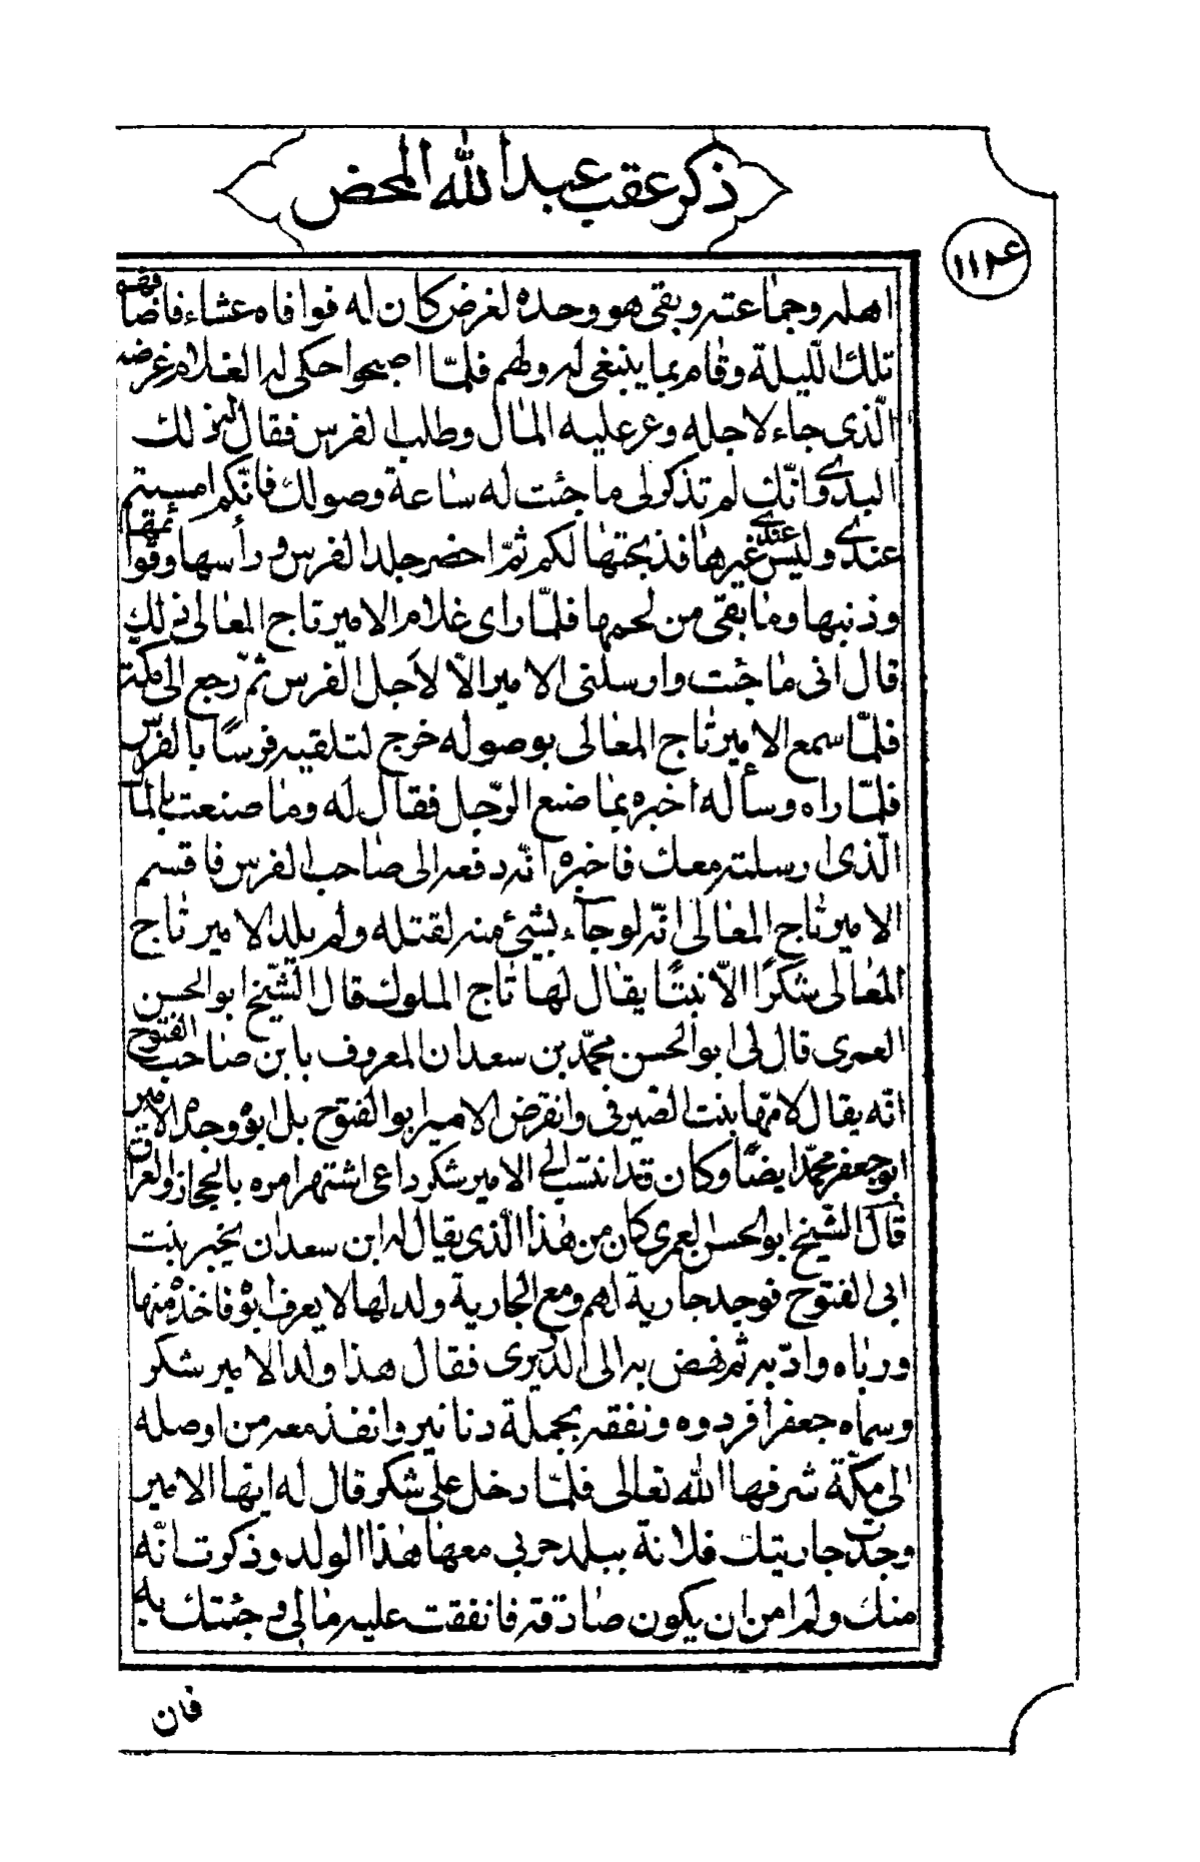 ذكر عقب عبد الله المحض
١١٤
اهله وجماعته وبقى هو وحده لغرض كان له فوافاه عشاء فاضافهم
تلك اللّيلة وقام بما ينبغى له ولهم فلمّا اصبحوا حكى له الغلام غرضه
الّذى جاء لاجله وعرض عليه المال وطلب الفرس فقال
البدوى وانّك لم تذكر لى ما جئت له ساعة وصولك فانّكم امسيتم
عندى وليس عندى غيرها فذبحتها لكم ثمّ احضر جلد الفرس ورأسها وقوائمها
وذنبها وما بقى من لحمها فلمّا راى غلام الامير تاج المعالى ذلك
قال انى ما جئت وارسلنى الامير الّا لاجل الفرس ثمّ رجع الى مكّة
فلمّا سمع الامير تاج المعالى بوصوله خرج لتلقيه فرسًا بالفرس
فلمّا راه وسأله اخبره بما صنع الرّجل فقال له وما صنعت بالمال
الّذى ارسلته معك فاخبره انّه دفعه الى صاحب الفرس فاقسم
الامير تاج المعالى انّه لو جاء بشئ منه لقتله ولم يلد الامير تاج
المعالى شكرًا الّا بنتًا يقال لها تاج الملوك قال الشّيخ ابو الحسن
العمرى قال لى ابو الحسن محمّد بن سعدان المعروف بابن صاحب الفتوح
انّه يقال لامّها بنت الصّيرفى وانقرض الامير ابو الفتوح بل ابوه وجده الامير
ابو جعفر محمّد ايضًا وكان قد انتسب الى الامير شكر داعى اشتهر امره بالحجاز والعراق
قال الشّيخ ابو الحسن العمرى كان من هذا الّذى يقال له ابن سعدان يخبر بنت
ابى الفتوح فوجد جارية لهم ومع الجارية ولد لها لا يعرف ابوه فاخذه منها
وربّاه وادّبه ثم نهض به الى الدّيرى فقال هذا ولد الامير شكر
وسماه جعفرا فردوه ونفقه بجملة دنانير وانفذ معه من اوصله
الى مكّة شرفها الله تعالى فلمّا دخل على شكر قال له ايّها الامير
وجدت جاريتك فلانة ببلد حربى معها هذا الولد وذكرت انّه
منك ولم امن ان يكون صادقة فانفقت عليه مالى وجئتك به
فان